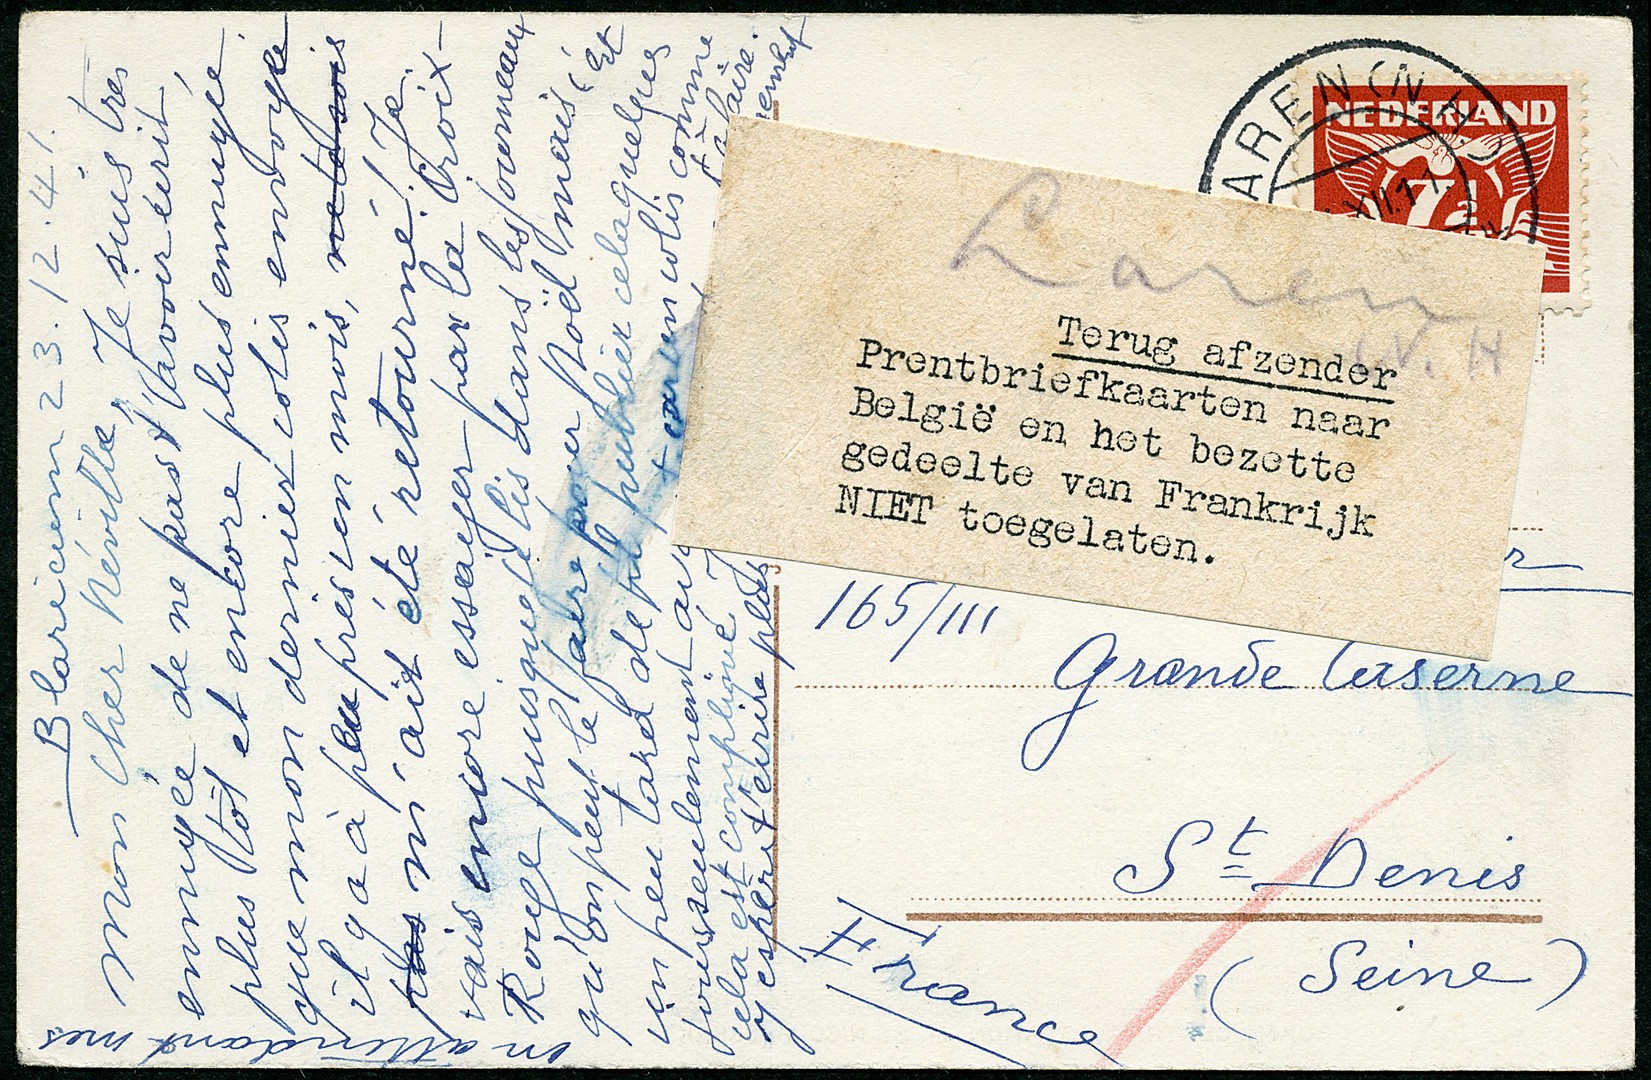 Blaricum 23.12.41.
Mon cher Néville, Je suis très
ennuyée de ne pas t'avoir écrit,
plus tôt et encore plus ennuyée
que mon dernier colis envoyé
il y a à peu près un mois, ne te sois
pas m'ait été retourné! Je
vais encore essayer par la Croix-
Rouge puisque je lis dans les journeaux
qu'on peut le faire pour Noël mais (et
un peu tard de publier cela quelques
jours seulement
cela est compliqué
y espérit t'écrire plus
en attendant mes
un colis comme
NEDERLAND
7½
LAREN (N.H.)
XII.11
Laren
N.H
Terug afzender
Prentbriefkaarten naar
België en het bezette
gedeelte van Frankrijk
NIET toegelaten.
165/III
Grande Caserne
St Denis
(Seine)
France